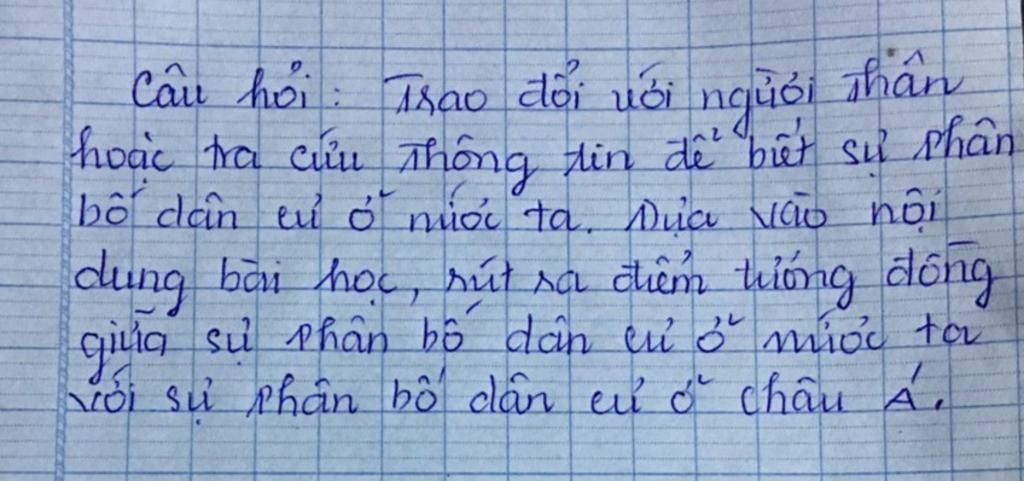 Câu hỏi: Trao đổi với người thân
hoặc tra cứu thông tin để biết sự phân
bố dân cư ở nước ta. Dựa vào nội
dung bài học, rút ra điểm tương đồng
giữa sự phân bố dân cư ở nước ta
với sự phân bố dân cư ở châu Á.